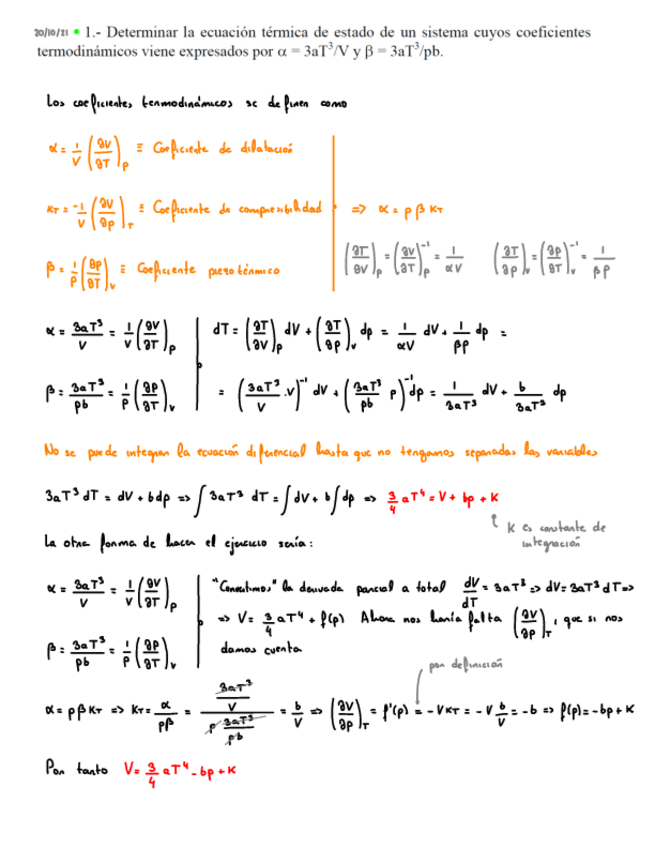 20/10/21 • 1.- Determinar la ecuación térmica de estado de un sistema cuyos coeficientes
termodinámicos viene expresados por α = 3aT³/V y β = 3aT³/pb.
Los coeficientes termodinámicos se definen como
α = 1/V (∂V/∂T)_p ≡ Coeficiente de dilatación
K_T = -1/V (∂V/∂p)_T ≡ Coeficiente de compresibilidad ⇒ α = p β K_T
β = 1/p (∂p/∂T)_V ≡ Coeficiente piezotérmico (∂T/∂V)_p = (∂V/∂T)_p^-1 = 1/αV (∂T/∂p)_V = (∂p/∂T)_V^-1 = 1/βp
α = 3aT³/V = 1/V (∂V/∂T)_p | dT = (∂T/∂V)_p dV + (∂T/∂p)_V dp = 1/αV dV + 1/βp dp =
β = 3aT³/pb = 1/p (∂p/∂T)_V | = (3aT³/V · V)^-1 dV + (3aT³/pb p)^-1 dp = 1/3aT³ dV + b/3aT³ dp
No se puede integrar la ecuación diferencial hasta que no tengamos separadas las variables
3aT³ dT = dV + b dp ⇒ ∫ 3aT³ dT = ∫ dV + b ∫ dp ⇒ 3/4 aT⁴ = V + bp + K
↑ K es constante de
integración
La otra forma de hacer el ejercicio sería:
α = 3aT³/V = 1/V (∂V/∂T)_p | "Convertimos" la derivada parcial a total dV/dT = 3aT³ ⇒ dV = 3aT³ dT ⇒
⇒ V = 3/4 aT⁴ + f(p) Ahora nos haría falta (∂V/∂p)_T, que si nos
β = 3aT³/pb = 1/p (∂p/∂T)_V | damos cuenta
por definición
α = p β K_T ⇒ K_T = α/pβ = (3aT³/V)/(p 3aT³/pb) = b/V ⇒ (∂V/∂p)_T = f'(p) = -V K_T = -V b/V = -b ⇒ f(p) = -bp + K
Por tanto V = 3/4 aT⁴ - bp + K